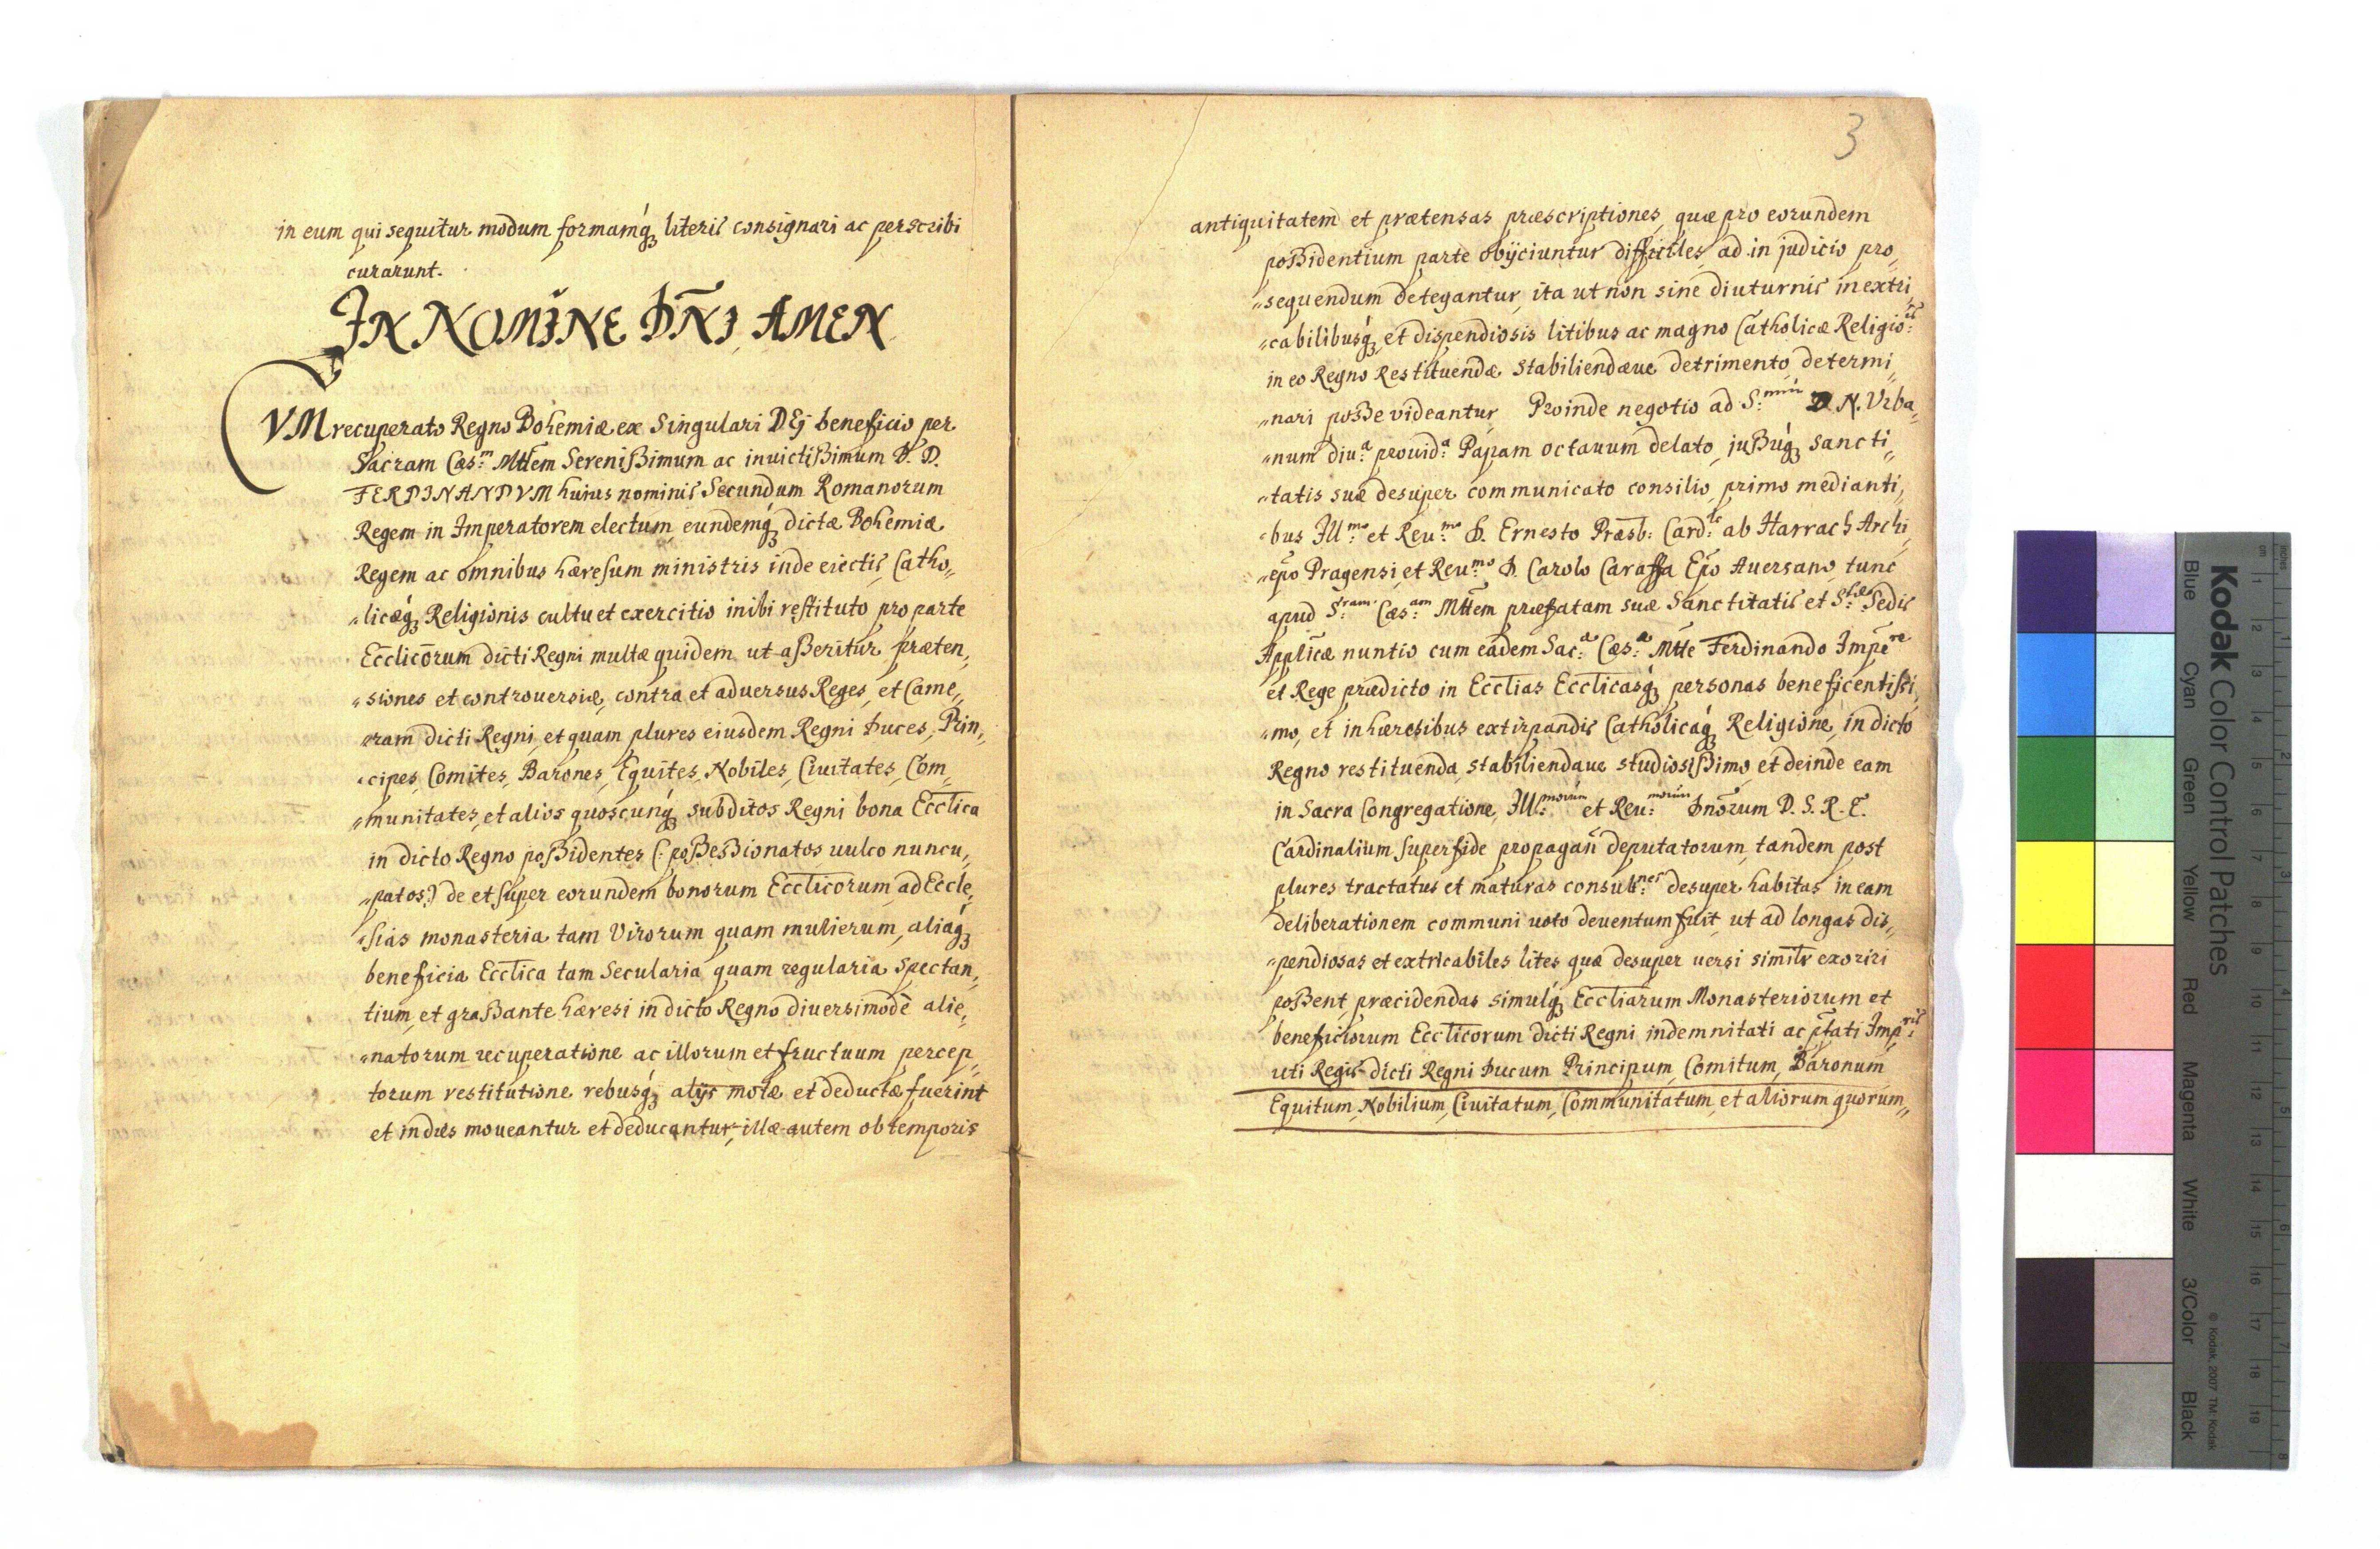 in eum qui sequitur modum formamq́ꝫ literis consignari ac perscribi
curarunt.
IN NOMINE DÑI AMEN
CVM recuperato Regno Bohemiæ ex Singulari DEj beneficio per
Sacram Cæs:m Mttem Serenißimum ac inuictißimum D. D.
FERDINANDVM huius nominis Secundum Romanorum
Regem in Imperatorem electum, eundemq́ꝫ dictæ Bohemiæ
Regem ac omnibus hæresum ministris inde eiectis, Catho„
„licæq́ꝫ Religionis cultu et exercitio inibi restituto pro parte
Ecclicōrum dicti Regni multæ quidem ut aßeritur præten„
„siones et controuersiæ, contra et aduersus Reges, et Came„
ram dicti Regni, et quam plures eiusdem Regni Duces, Prin„
„cipes, Comites, Barones, Equites, Nobiles, Ciuitates, Com„
„munitates, et alios quoscunq́ꝫ subditos Regni bona Ecclica
in dicto Regno poßidentes (: poßeßionatos uulco nuncu„
„patos:) de et super eorundem bonorum Ecclicorum, ad Eccle„
„sias monasteria tam Virorum quam mulierum, aliaq́ꝫ
beneficia Ecclica tam Secularia quam regularia Spectan„
tium, et graßante hæresi in dicto Regno diuersimodè alie„
„natorum recuperatione ac illorum et fructuum percep„
torum restitutione rebusq́ꝫ alijs motæ et deductæ fuerint
et in dies moueantur et deducantur, illæ autem ob temporis
3
antiquitatem et prætensas præscriptiones, quæ pro eorundem
poßidentium parte obijciuntur difficiles, ad in judicio pro„
„sequendum detegantur, ita ut non sine diuturnis inextri„
„cabilibusq́ꝫ et dispendiosis litibus ac magno Catholicæ Religio:is
in eo Regno Restituendæ Stabiliendæue detrimento, determi„
„nari poße videantur, Proinde negotio ad S:mũ D. N. Vrba„
„num diu:a prouid:a Papam octauum delato, jußuq́ꝫ sancti„
„tatis suæ desuper communicato consilio, primo medianti„
„bus Ill:mo et Reu:mo D. Ernesto Præsb: Card:le ab Harrach Archi„
„epo Pragensi, et Reu:mo D. Carolo Caraffa Epo Auersano, tunc
apud S:ram Cæs:am Mttem præfatam suæ Sanctitatis et S:tæ Sedis
Applicæ nuntio cum eadem Sac:a Cæs:a Mtte Ferdinando Impere
et Rege prædicto in Ecclias Ecclicasq́ꝫ personas beneficentissi„
„mo, et in hæresibus extirpandis Catholicaq́ꝫ Religione, in dicto
Regno restituenda, stabiliendaue studiosißimo et deinde eam
in Sacra Congregatione, Ill:morum et Reu:morum Dnōrum D. S. R. E.
Cardinalium super fide propagañ deputatorum, tandem post
plures tractatus et maturas consult:nes desuper habitas, in eam
deliberationem communi uoto deuentum fuit, ut ad longas dis„
„pendiosas et extricabiles lites quæ desuper uersi similr exoriri
poßent, præcidendas simulq́ꝫ Eccliarum Monasteriorum et
beneficiorum Ecclicorum dicti Regni indemnitati ac p̃fati Imp:ris
uti Regis dicti Regni Ducum Principum, Comitum, Baronum
Equitum, Nobilium, Ciuitatum, Communitatum, et aliorum quorum„
Kodak Color Control Patches
© Kodak, 2007 TM: Kodak
Blue Cyan Green Yellow Red Magenta White 3/Color Black
cm 1 2 3 4 5 6 7 8 9 10 11 12 13 14 15 16 17 18 19
inches 1 2 3 4 5 6 7 8